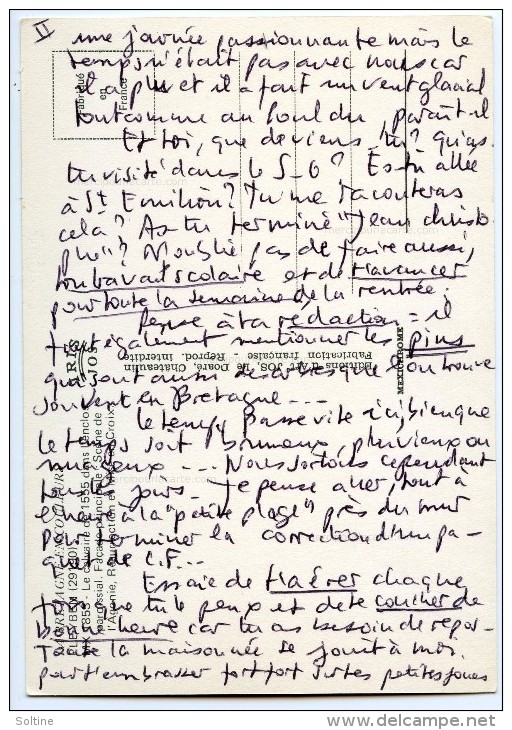 II
une journée passionnante mais le
temps n'était pas avec nous car
il a plu et il a fait un vent glacial
tout comme au Pouldu, paraît-il
Et toi, que deviens-tu? qu'as
tu visité dans le S-O? Es-tu allée
à St Emilion? Tu me raconteras
cela? As-tu terminé "Jean Christo
phe"? N'oublie pas de faire aussi,
ton travail scolaire et de t'avancer
pour toute la semaine de la rentrée.
Pense à ta rédaction = il
faut également mentionner les pins
qui sont aussi des arbres que l'on trouve
souvent en Bretagne...
Le temps passe vite ici, bien que
le temps soit brumeux, pluvieux ou
nuageux... Nous sortons cependant
tous les jours. Je pense aller, tout à
l'heure à la "petite plage" près du mur
pour terminer la correction d'un pa-
quet de C.F...
Essaie de t'aérer chaque
fois que tu le peux et de te coucher de
bonne heure car tu as besoin de repos-
Toute la maisonnée se joint à moi
pour t'embrasser fort fort sur tes petites joues
Fabriqué
en
France
Editions d'Art JOS, Le Doaré, Châteaulin
Fabrication française - Reprod. Interdite
JOS
MEXICHROME
BRETAGNE EN COULEURS
PLEYBEN (29190)
MX 5855 - Le calvaire de 1555 dans l'enclos
paroissial. Façade principale : Scène de
l'Agonie, Résurrection et Mise en Croix
Soltine